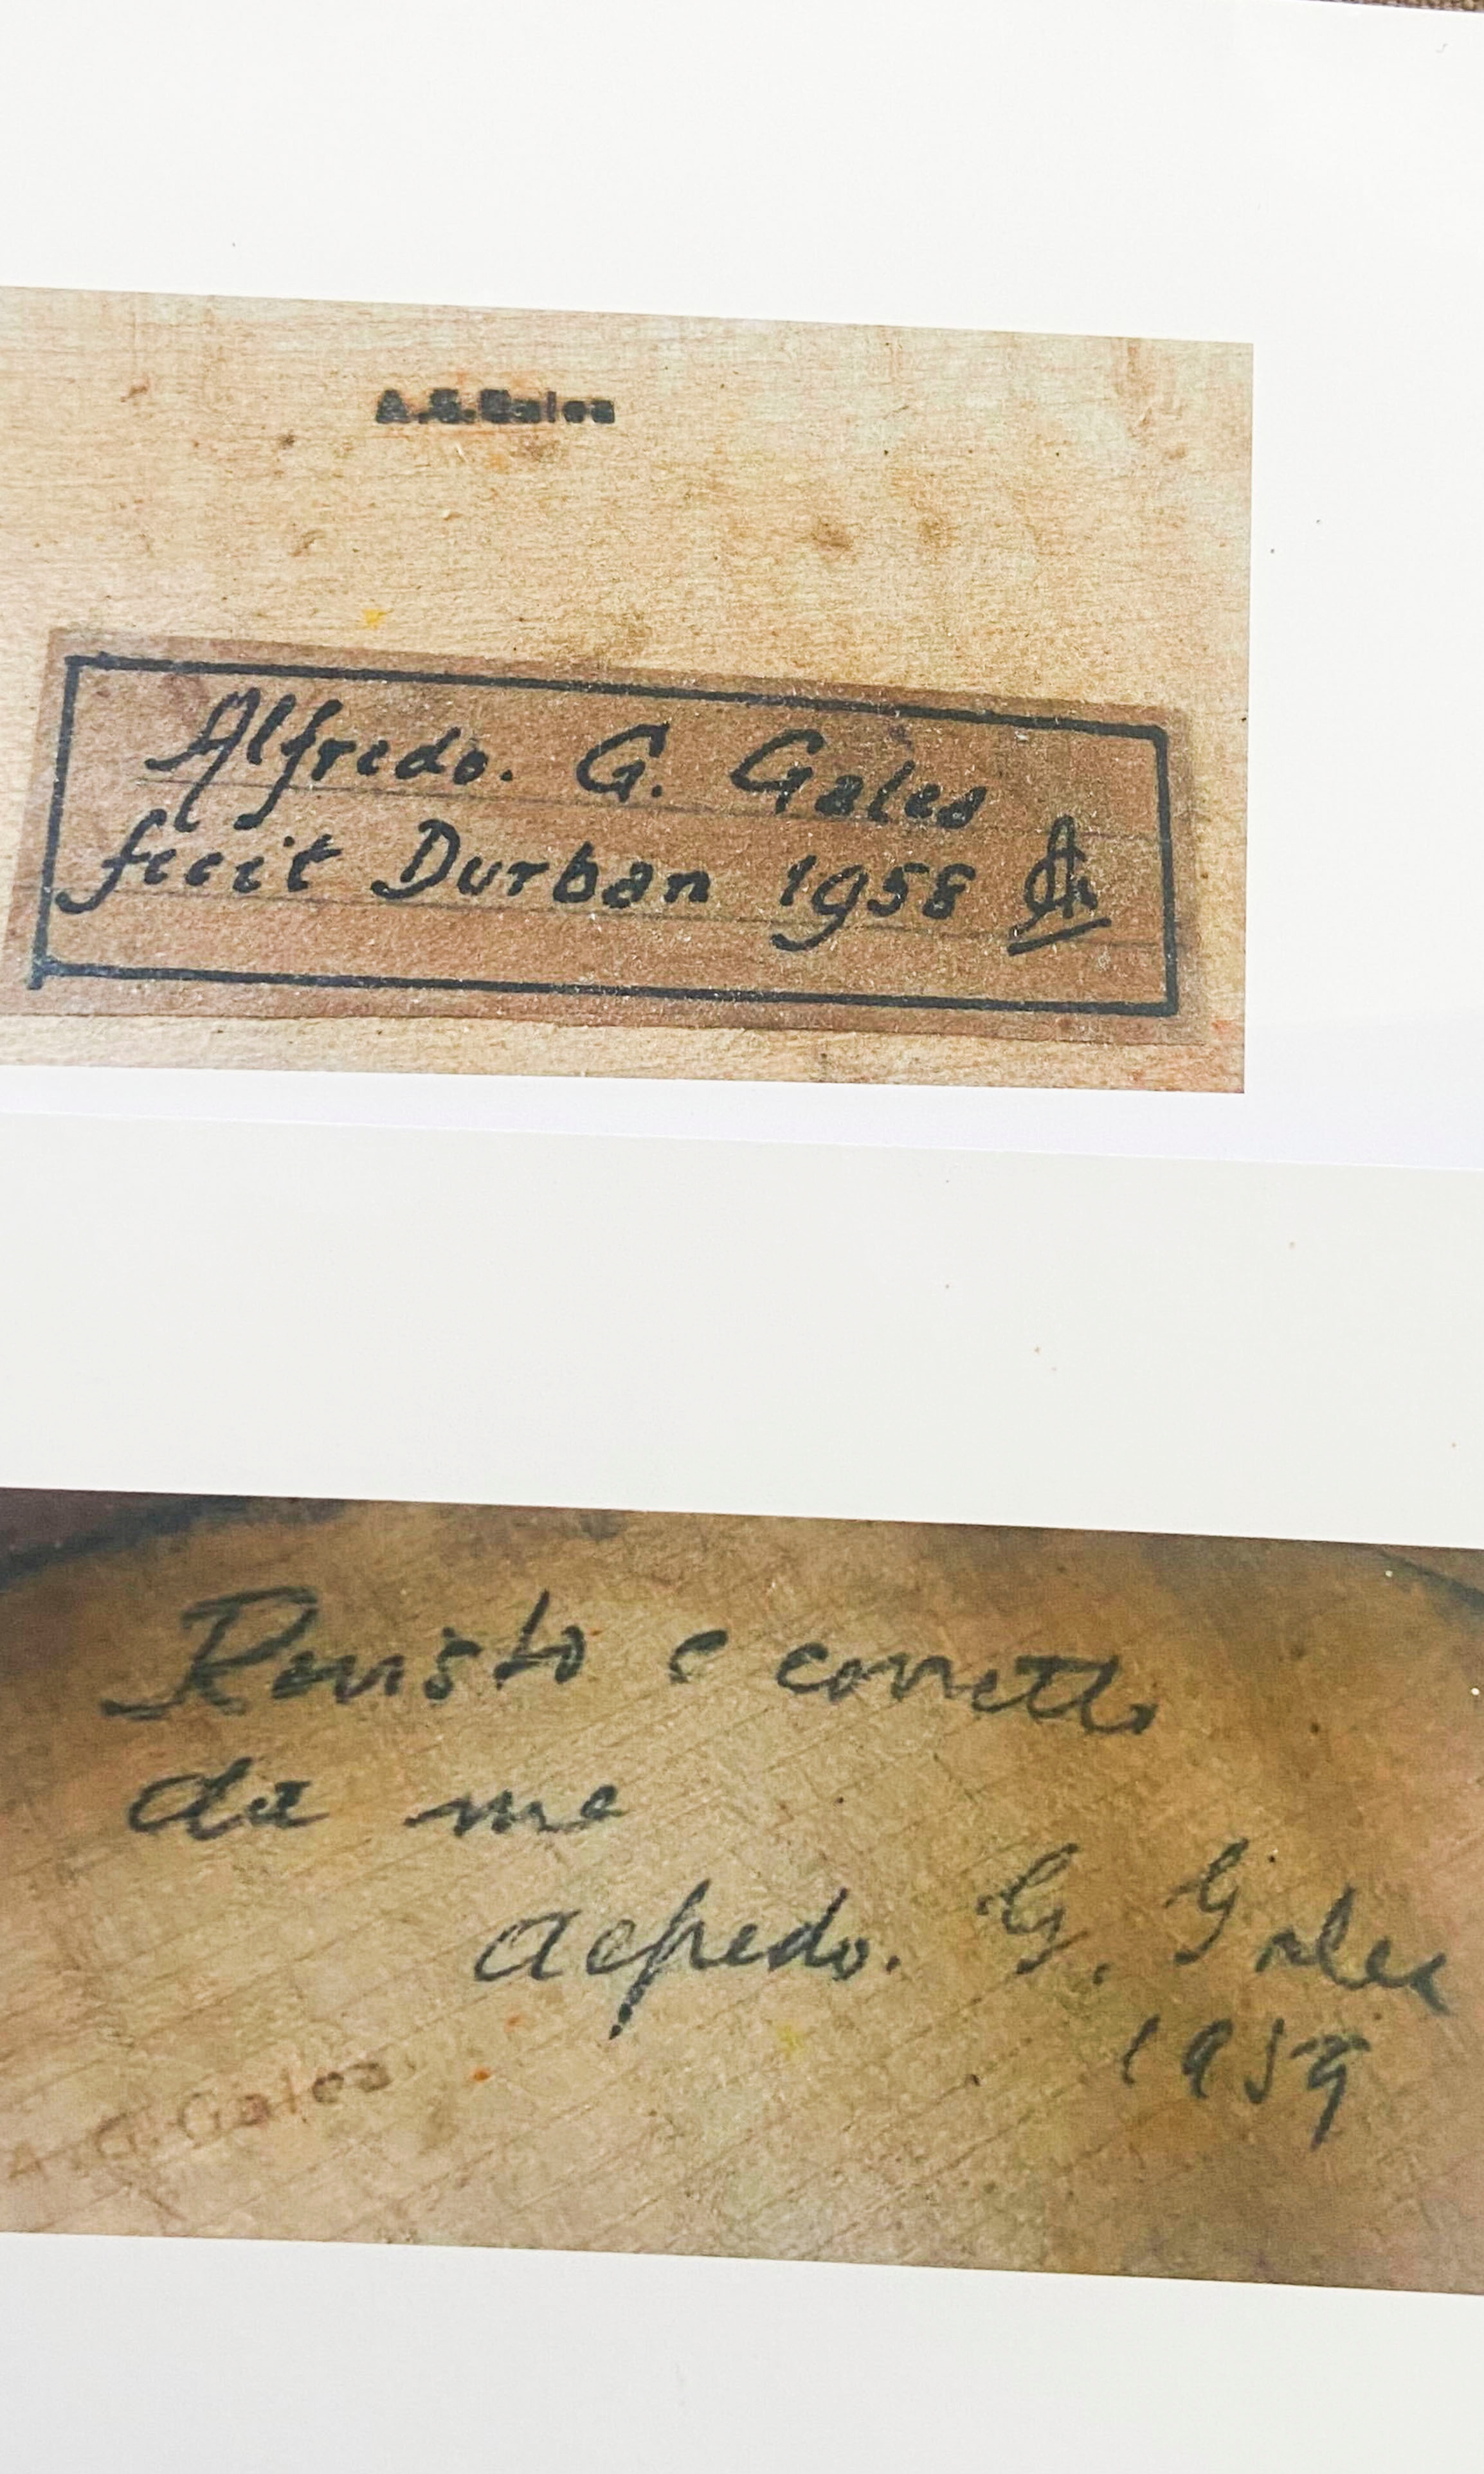 A.G.Galea
Alfredo. G. Galea
fecit Durban 1958 AG
Revisto e corretto
da me
Alfredo. G. Galea
1959
A.G.Galea